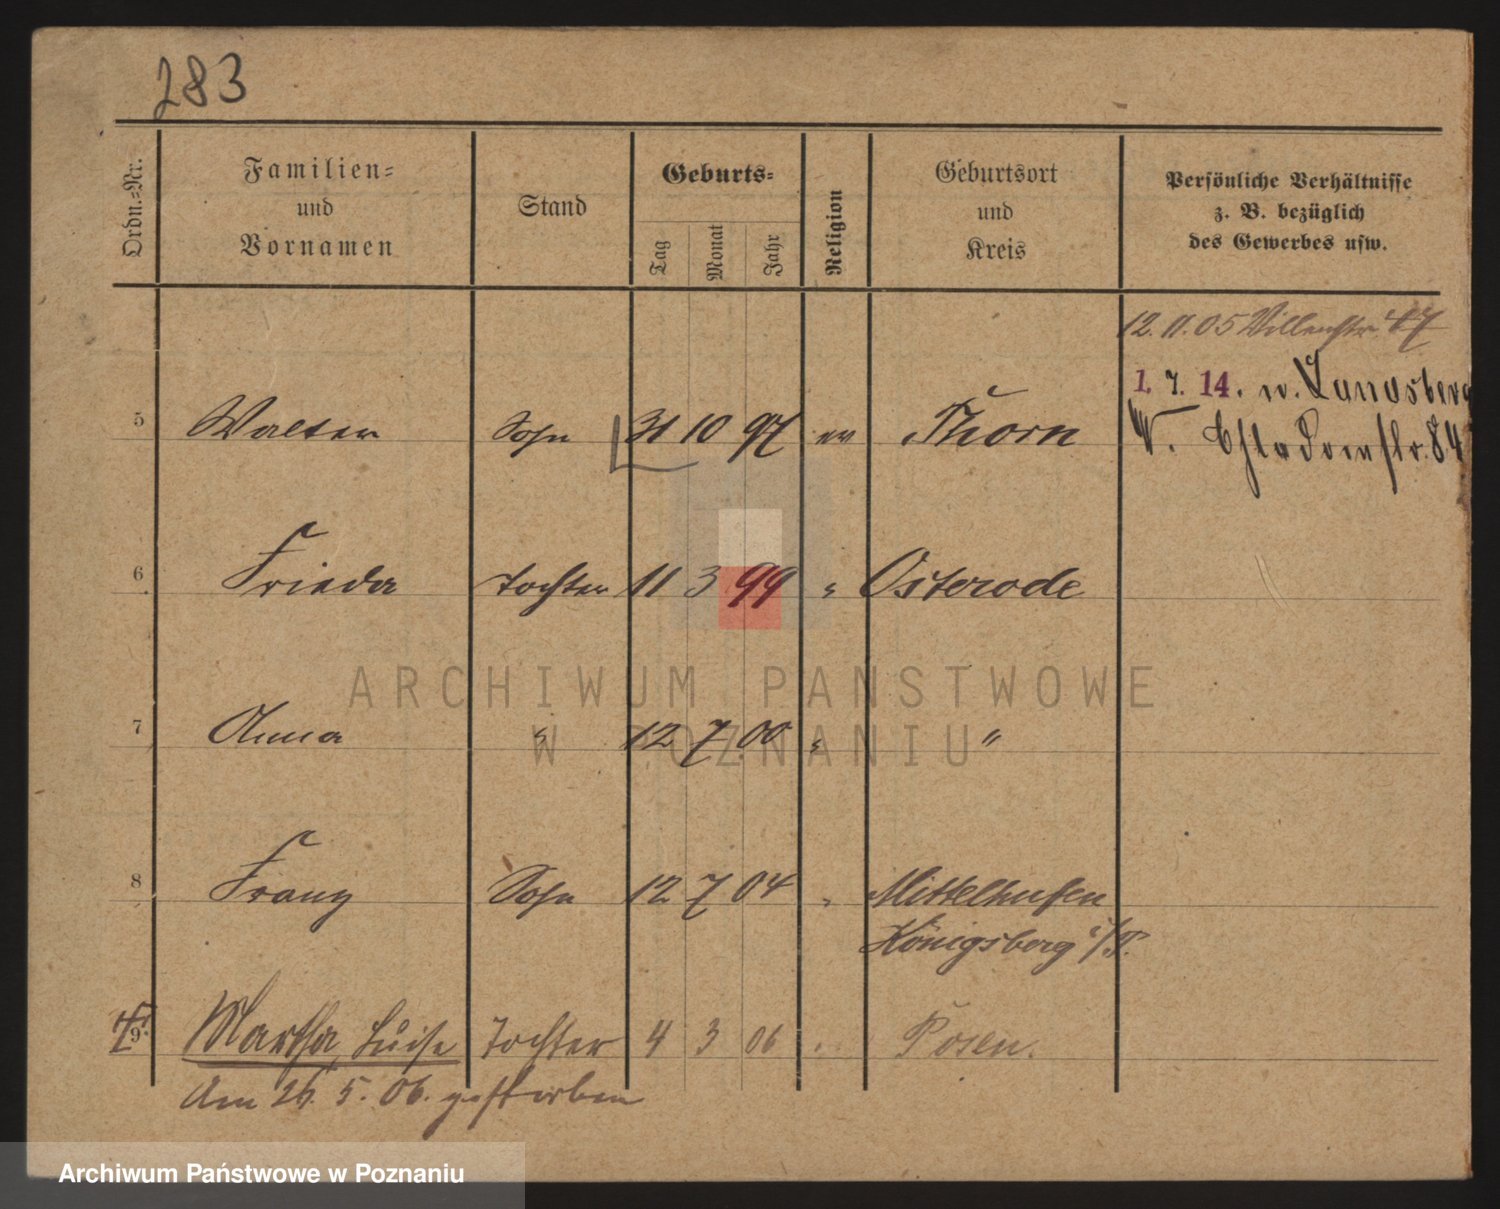 283
Ordn.-Nr.
Familien-
und
Vornamen
Stand
Geburts-
Tag
Monat
Jahr
Religion
Geburtsort
und
Kreis
Persönliche Verhältnisse
z. B. bezüglich
des Gewerbes usw.
12. 11. 05 Villenstr.
1. 7. 14. n. Landsberg
5 Walter Sohn 31 10 97 ev Thorn W. 84
6 Frieda Tochter 11 3 99 " Osterode
7 Anna " 12 7 00 " "
8 Franz Sohn 12 7 04 " Mittelhufen
Königsberg i/P.
9 Martha, Luise Tochter 4 3 06 " Posen.
Am 26. 5. 06. gestorben
ARCHIWUM PANSTWOWE
W POZNANIU
Archiwum Państwowe w Poznaniu